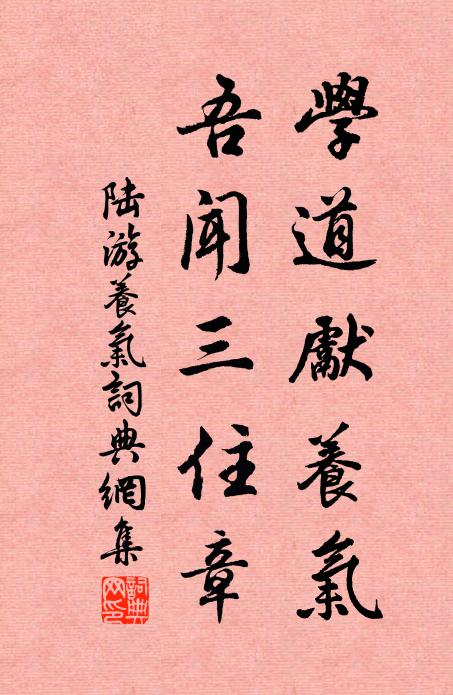 學道獻養氣
吾聞三住章
陸游養氣詞典網集
詞典网印